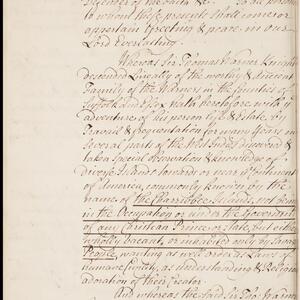 Defender of the Faith &c. To all persons
to whom these presents shall come or
appertain Greeting & peace in our
Lord Everlasting.
Whereas Sr. Thomas Warner Knight
descended Linealy of the worthy & Ancient
Family of the Warners in the Counties of
Suffolk and Essex hath heretofore with ye
adventure of his person life & Estate by
Travail & frequentation for many Years in
several parts of the West Indies discovered &
taken special observation & knowledge of
Divers Islands towards or near ye Continent
of America, commonly known by the
name of the Charribee Islands, not being
in the Occupation or under the Government
of any Christian Prince or State, but either
wholly vacant, or inhabited only by Savage
People, wanting as well order as Laws of
humane Civility, as understanding & Religious
adoration of their Creator.
And whereas the said Sr. Tho: Warner